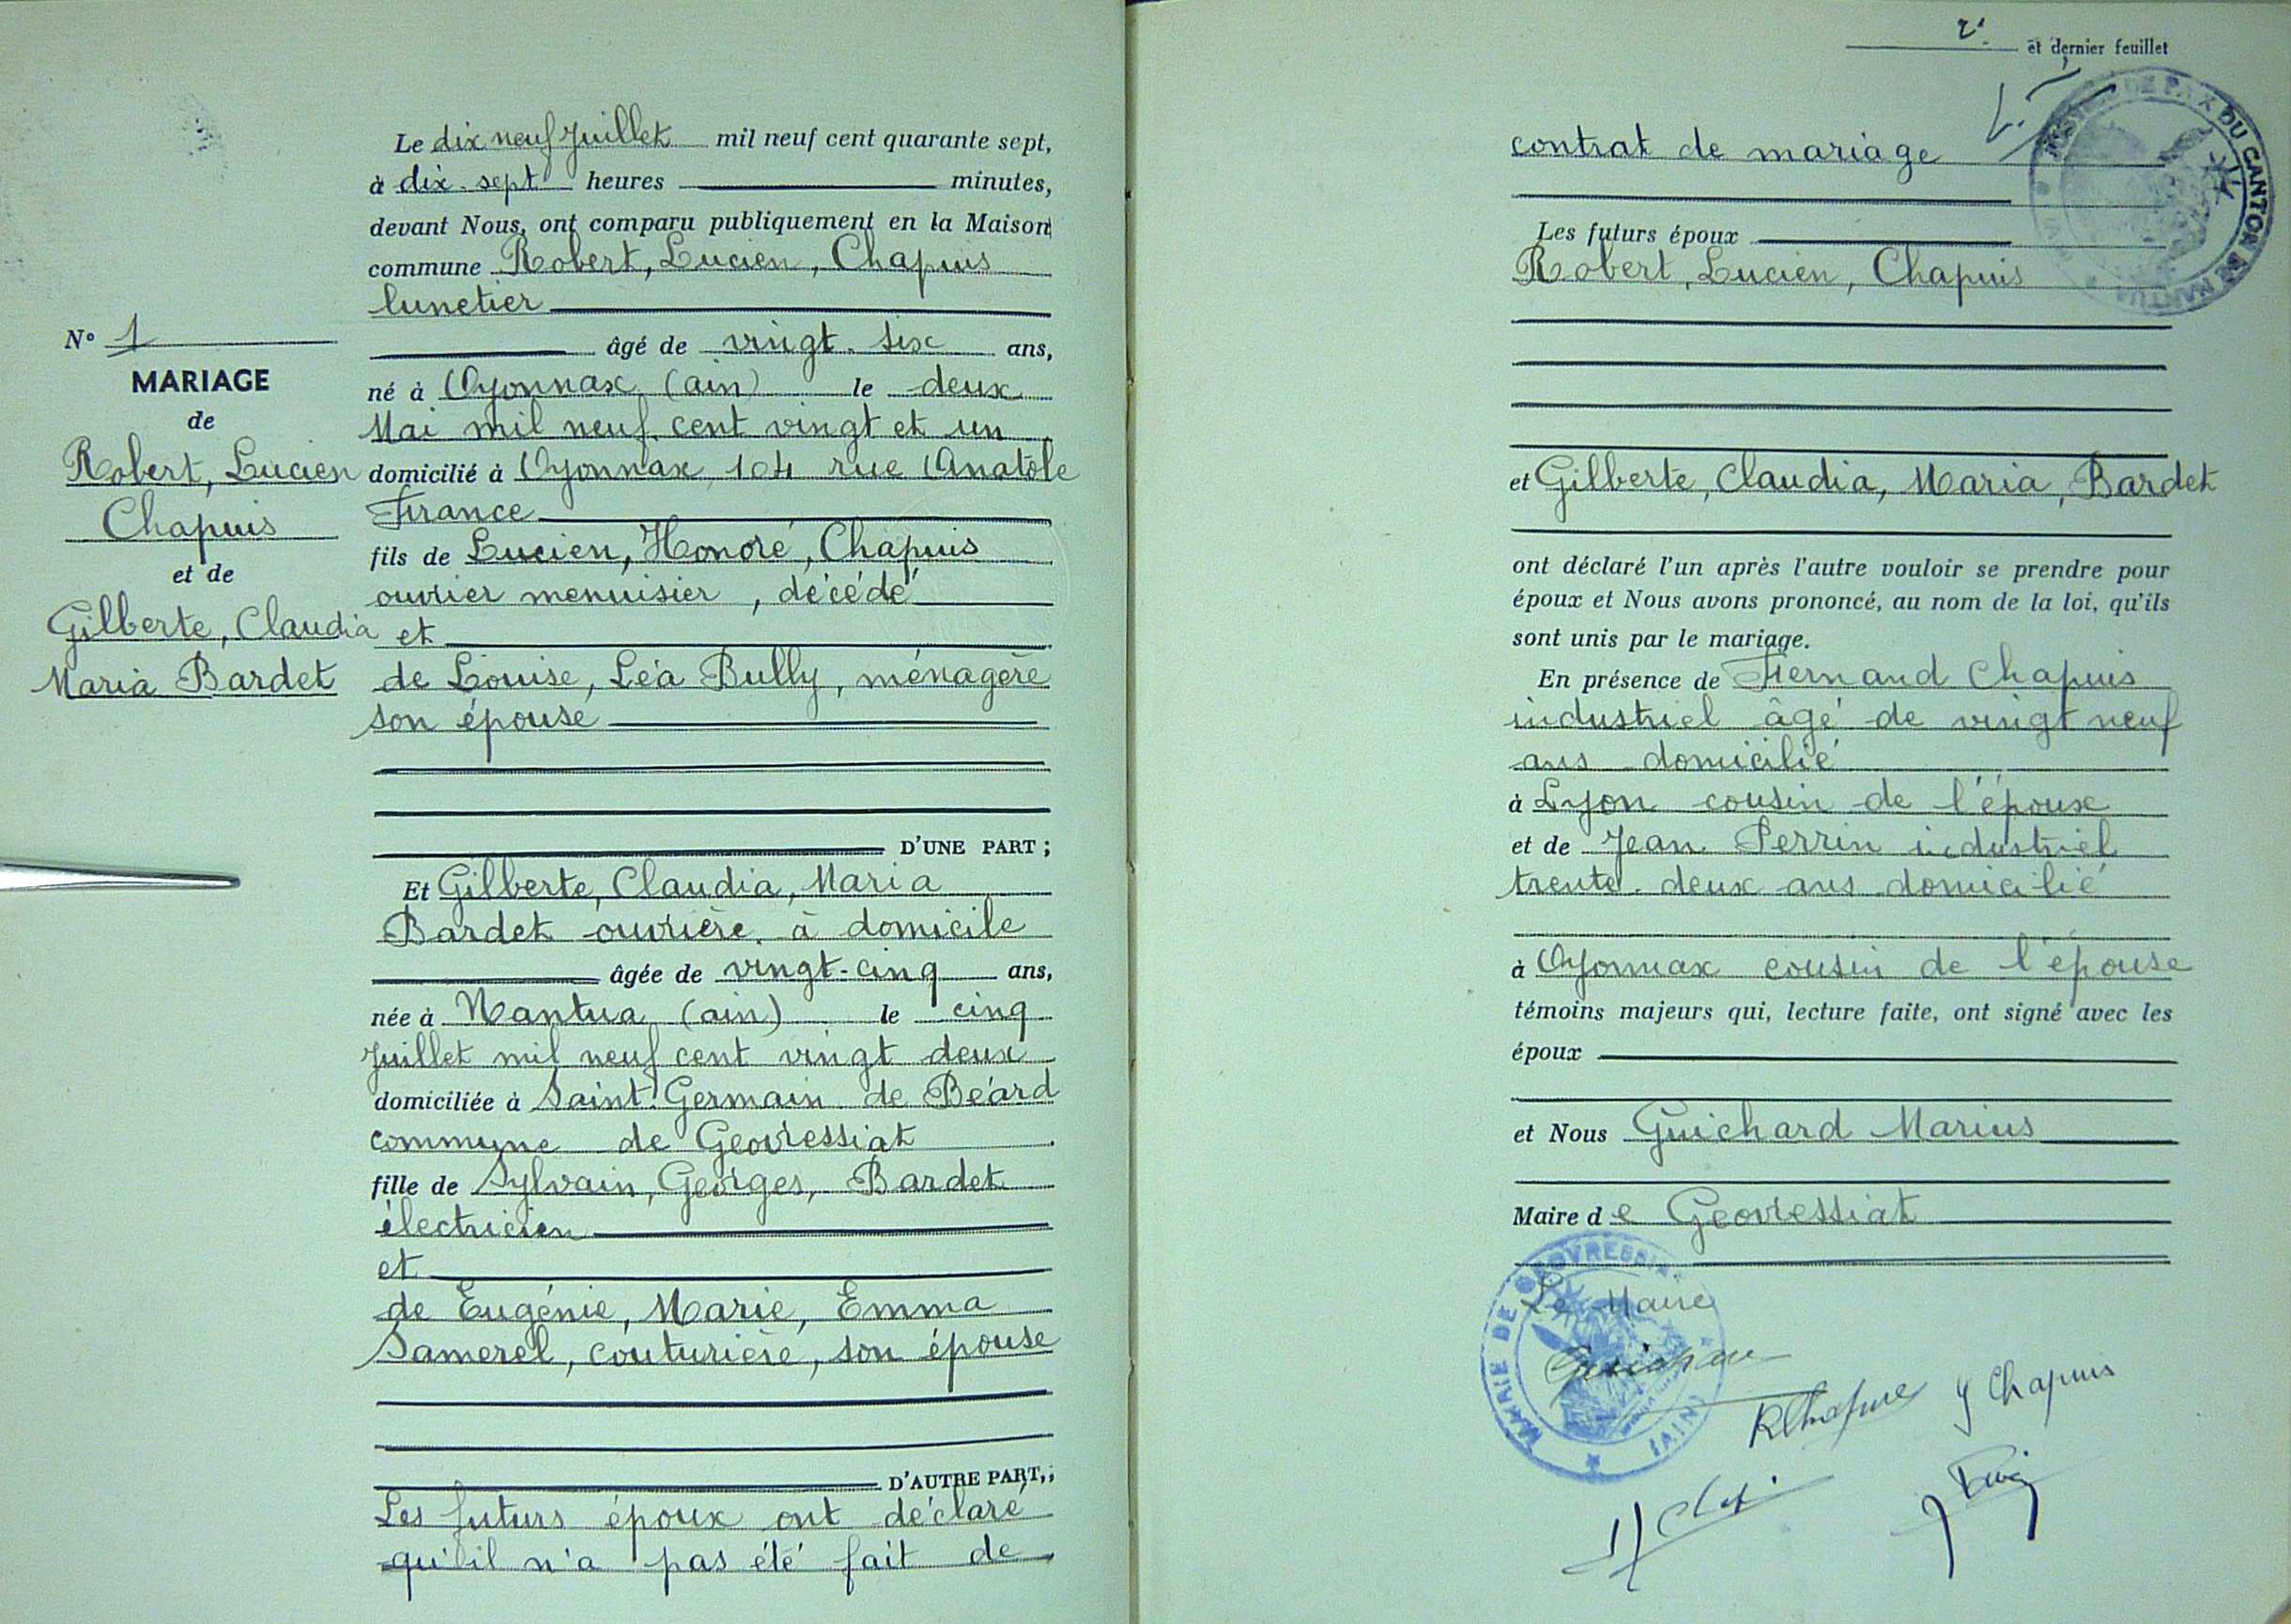 N° 1
MARIAGE
de
Robert, Lucien
Chapuis
et de
Gilberte, Claudia
Maria Bardet
Le dix neuf Juillet mil neuf cent quarante sept,
à dix-sept heures minutes,
devant Nous, ont comparu publiquement en la Maison
commune Robert, Lucien, Chapuis
lunetier
âgé de vingt-six ans,
né à Oyonnax (ain) le deux
Mai mil neuf cent vingt et un
domicilié à Oyonnax 104 rue Anatole
France
fils de Lucien, Honoré, Chapuis
ouvrier menuisier, décédé
et
de Louise, Léa Bully, ménagère
son épouse
D'UNE PART ;
Et Gilberte, Claudia, Maria
Bardet ouvrière à domicile
âgée de vingt-cinq ans,
née à Nantua (ain) le cinq
Juillet mil neuf cent vingt deux
domiciliée à Saint-Germain de Béard
commune de Geovressiat
fille de Sylvain, Georges, Bardet
électricien
et
de Eugénie, Marie, Emma
Samerel, couturière, son épouse
D'AUTRE PART,;
Les futurs époux ont déclaré
qu'il n'a pas été fait de
2e et dernier feuillet
DU CANTON DE NANTUA
contrat de mariage
Les futurs époux
Robert, Lucien, Chapuis
et Gilberte, Claudia, Maria, Bardet
ont déclaré l'un après l'autre vouloir se prendre pour
époux et Nous avons prononcé, au nom de la loi, qu'ils
sont unis par le mariage.
En présence de Fernand Chapuis
industriel âgé de vingt neuf
ans domicilié
à Lyon cousin de l'époux
et de Jean Perrin industriel
trente-deux ans domicilié
à Oyonnax cousin de l'épouse
témoins majeurs qui, lecture faite, ont signé avec les
époux
et Nous Guichard Marius
Maire de Geovressiat
MAIRIE DE GEOVRESSIAT (AIN)
Le Maire
Guichard
RChapuis G Chapuis